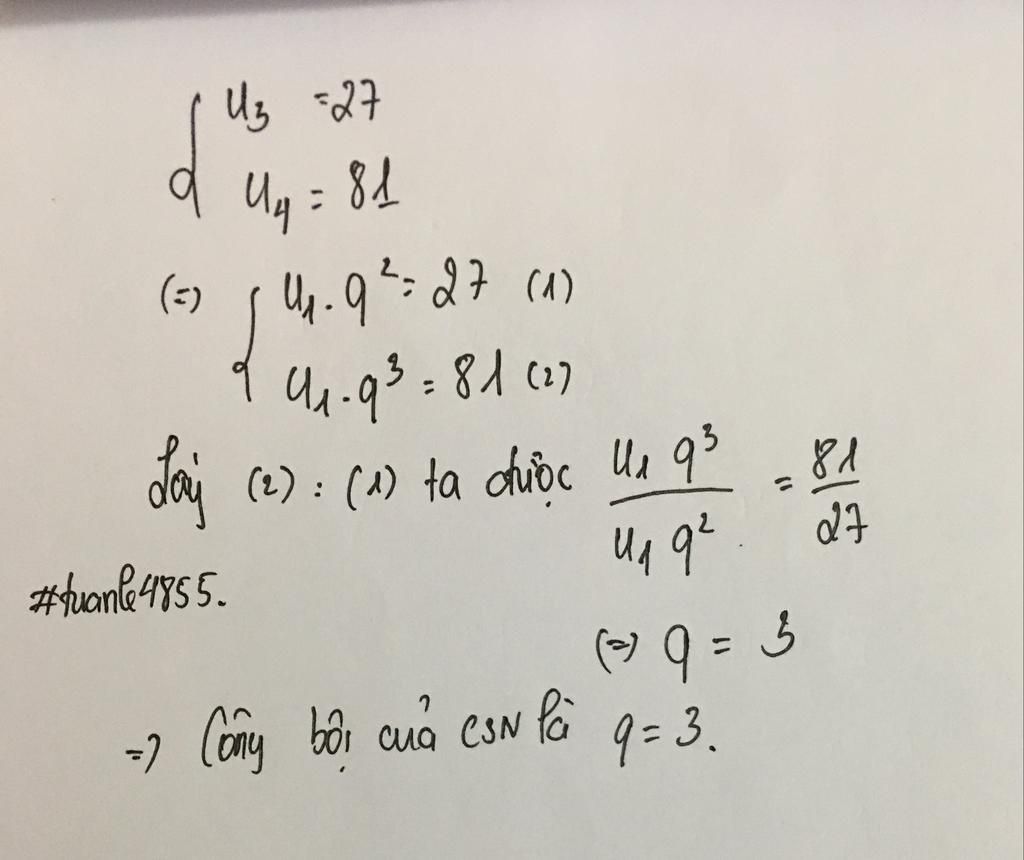 { u₃ = 27
u₄ = 81
(=) { u₁ . q² = 27 (1)
u₁ . q³ = 81 (2)
Lấy (2) : (1) ta được u₁ q³ / u₁ q² = 81 / 27
#tuanle4855.
(=) q = 3
=) Công bội của CSN là q = 3.